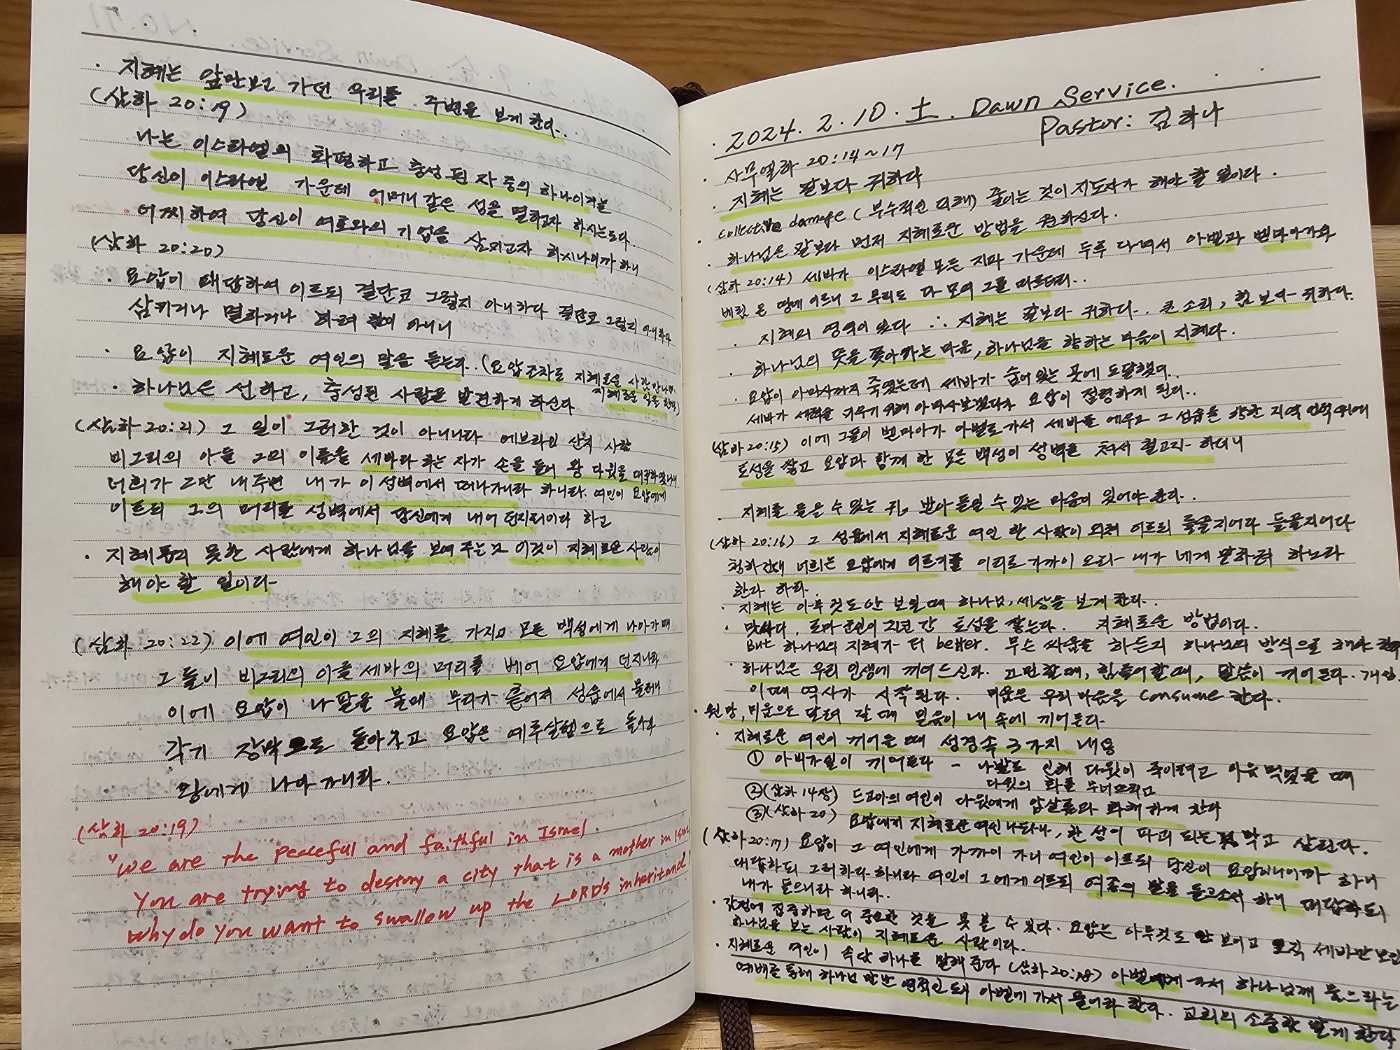 · 지혜는 앞만보고 가던 우리를 주변을 보게 한다..
(삼하 20:19)
나는 이스라엘의 화평하고 충성된 자 중의 하나이거늘
당신이 이스라엘 가운데 어머니 같은 성을 멸하고자 하시는도다.
어찌하여 당신이 여호와의 기업을 삼키고자 하시나이까 하니
(삼하 20:20)
· 요압이 대답하여 이르되 결단코 그렇지 아니하다 결단코 그렇지 아니하다
삼키거나 멸하거나 하려 함이 아니니
· 요압이 지혜로운 여인의 말을 듣는다.. (요압조차도 지혜로운 사람
지혜로운 일을 한다)
· 하나님은 선하고, 충성된 사람을 발견하게 하신다
(삼하 20:21) 그 일이 그러한 것이 아니니라 에브라임 산지 사람
비그리의 아들 그의 이름을 세바라 하는 자가 손을 들어 왕 다윗을 대적하였나니
너희가 그만 내주면 내가 이 성벽에서 떠나가리라 하니라. 여인이 요압에게
이르되 그의 머리를 성벽에서 당신에게 내어 던지리이다 하고
· 지혜롭지 못한 사람에게 하나님을 보여 주는것 이것이 지혜로운 사람이
해야 할 일이다
(삼하 20:22) 이에 여인이 그의 지혜를 가지고 모든 백성에게 나아가매
그들이 비그리의 아들 세바의 머리를 베어 요압에게 던지니라
이에 요압이 나팔을 불매 무리가 흩어져 성읍에서 물러나
각기 장막으로 돌아가고 요압은 예루살렘으로 돌아와
왕에게 나아가니라.
(삼하 20:19)
"We are the peaceful and faithful in Israel.
You are trying to destroy a city that is a mother in Israel
Why do you want to swallow up the LORD's inheritance
2024. 2. 10. 土. Dawn Service.
Pastor: 김하나
· 사무엘하 20:14~17
· 지혜는 칼보다 귀하다
· collective damage (부수적인 피해) 줄이는 것이 지도자가 해야 할 일이다.
· 하나님은 칼보다 먼저 지혜로운 방법을 원하신다.
(삼하 20:14) 세바가 이스라엘 모든 지파 가운데 두루 다녀서 아벨과 벧마아가와
베림 온 땅에 이르니 그 무리도 다 모여 그를 따르더라..
· 지혜의 영역이 있다 ∴ 지혜는 칼보다 귀하다.. 큰 소리, 힘 보다 귀하다.
· 하나님의 뜻을 쫓아가는 마음, 하나님을 향하는 마음이 지혜다.
· 요압이 아마사까지 죽였는데 세바가 숨어 있는 곳에 도달했다..
세바가 세력을 키우기 위해 요압이 점령하게 된다..
(삼하 20:15) 이에 그들이 벧마아가 아벨로 가서 세바를 에우고 그 성읍을 향한 지역 언덕 위에
토성을 쌓고 요압과 함께 한 모든 백성이 성벽을 쳐서 헐고자 하더니
· 지혜를 들을 수 있는 귀, 받아 들일 수 있는 마음이 있어야 한다..
(삼하 20:16) 그 성읍에서 지혜로운 여인 한 사람이 외쳐 이르되 들을지어다 들을지어다
청하건대 너희는 요압에게 이르기를 이리로 가까이 오라 내가 네게 말하려 하노라
한다 하라.
· 지혜는 아무것도 안 보일 때 하나님, 세상을 보게 한다..
· 맞싸다. 로마 군인이 지킨 간 토성을 쌓는다. 지혜로운 방법이다.
But 하나님의 지혜가 더 better. 무슨 싸움을 하든지 하나님의 방식으로 해야 한다
· 하나님은 우리 인생에 끼어드신다. 고민할 때, 힘들어할 때, 말씀이 끼어든다. 개입.
이때 역사가 시작된다. 미움은 우리 마음을 consume 한다.
· 원망, 미움으로 달려 갈 때 믿음이 내 속에 끼어든다.
· 지혜로운 여인이 끼어든 때 성경속 3가지 내용
① 아비가일이 끼어든다 - 나발로 인해 다윗이 죽이려고 마음 먹었을 때
다윗의 화를 누그러뜨림
② (삼하 14장) 드고아의 여인이 다윗에게 압살롬과 화해하게 한다
③ (삼하 20) 요압에게 지혜로운 여인 나타나, 한 성이 파괴 되는걸 막고 살린다.
(삼하 20:17) 요압이 그 여인에게 가까이 가니 여인이 이르되 당신이 요압이니이까 하니
대답하되 그러하다 하니라 여인이 그에게 이르되 여종의 말을 들으소서 하니 대답하되
내가 들으리라 하니라.
· 감정에 집중하면 더 중요한 것을 못 볼 수 있다. 요압은 아무것도 안 보이고 오직 세바만 보인
하나님을 보는 사람이 지혜로운 사람이다.
· 지혜로운 여인이 속담 하나를 말해 준다 (삼하 20:18) 아벨에게 가서 하나님께 물으라는
예배를 통해 하나님 말씀 영적인 도리 아벨에 가서 물어라 한다. 교회의 소중함 알게 한다.